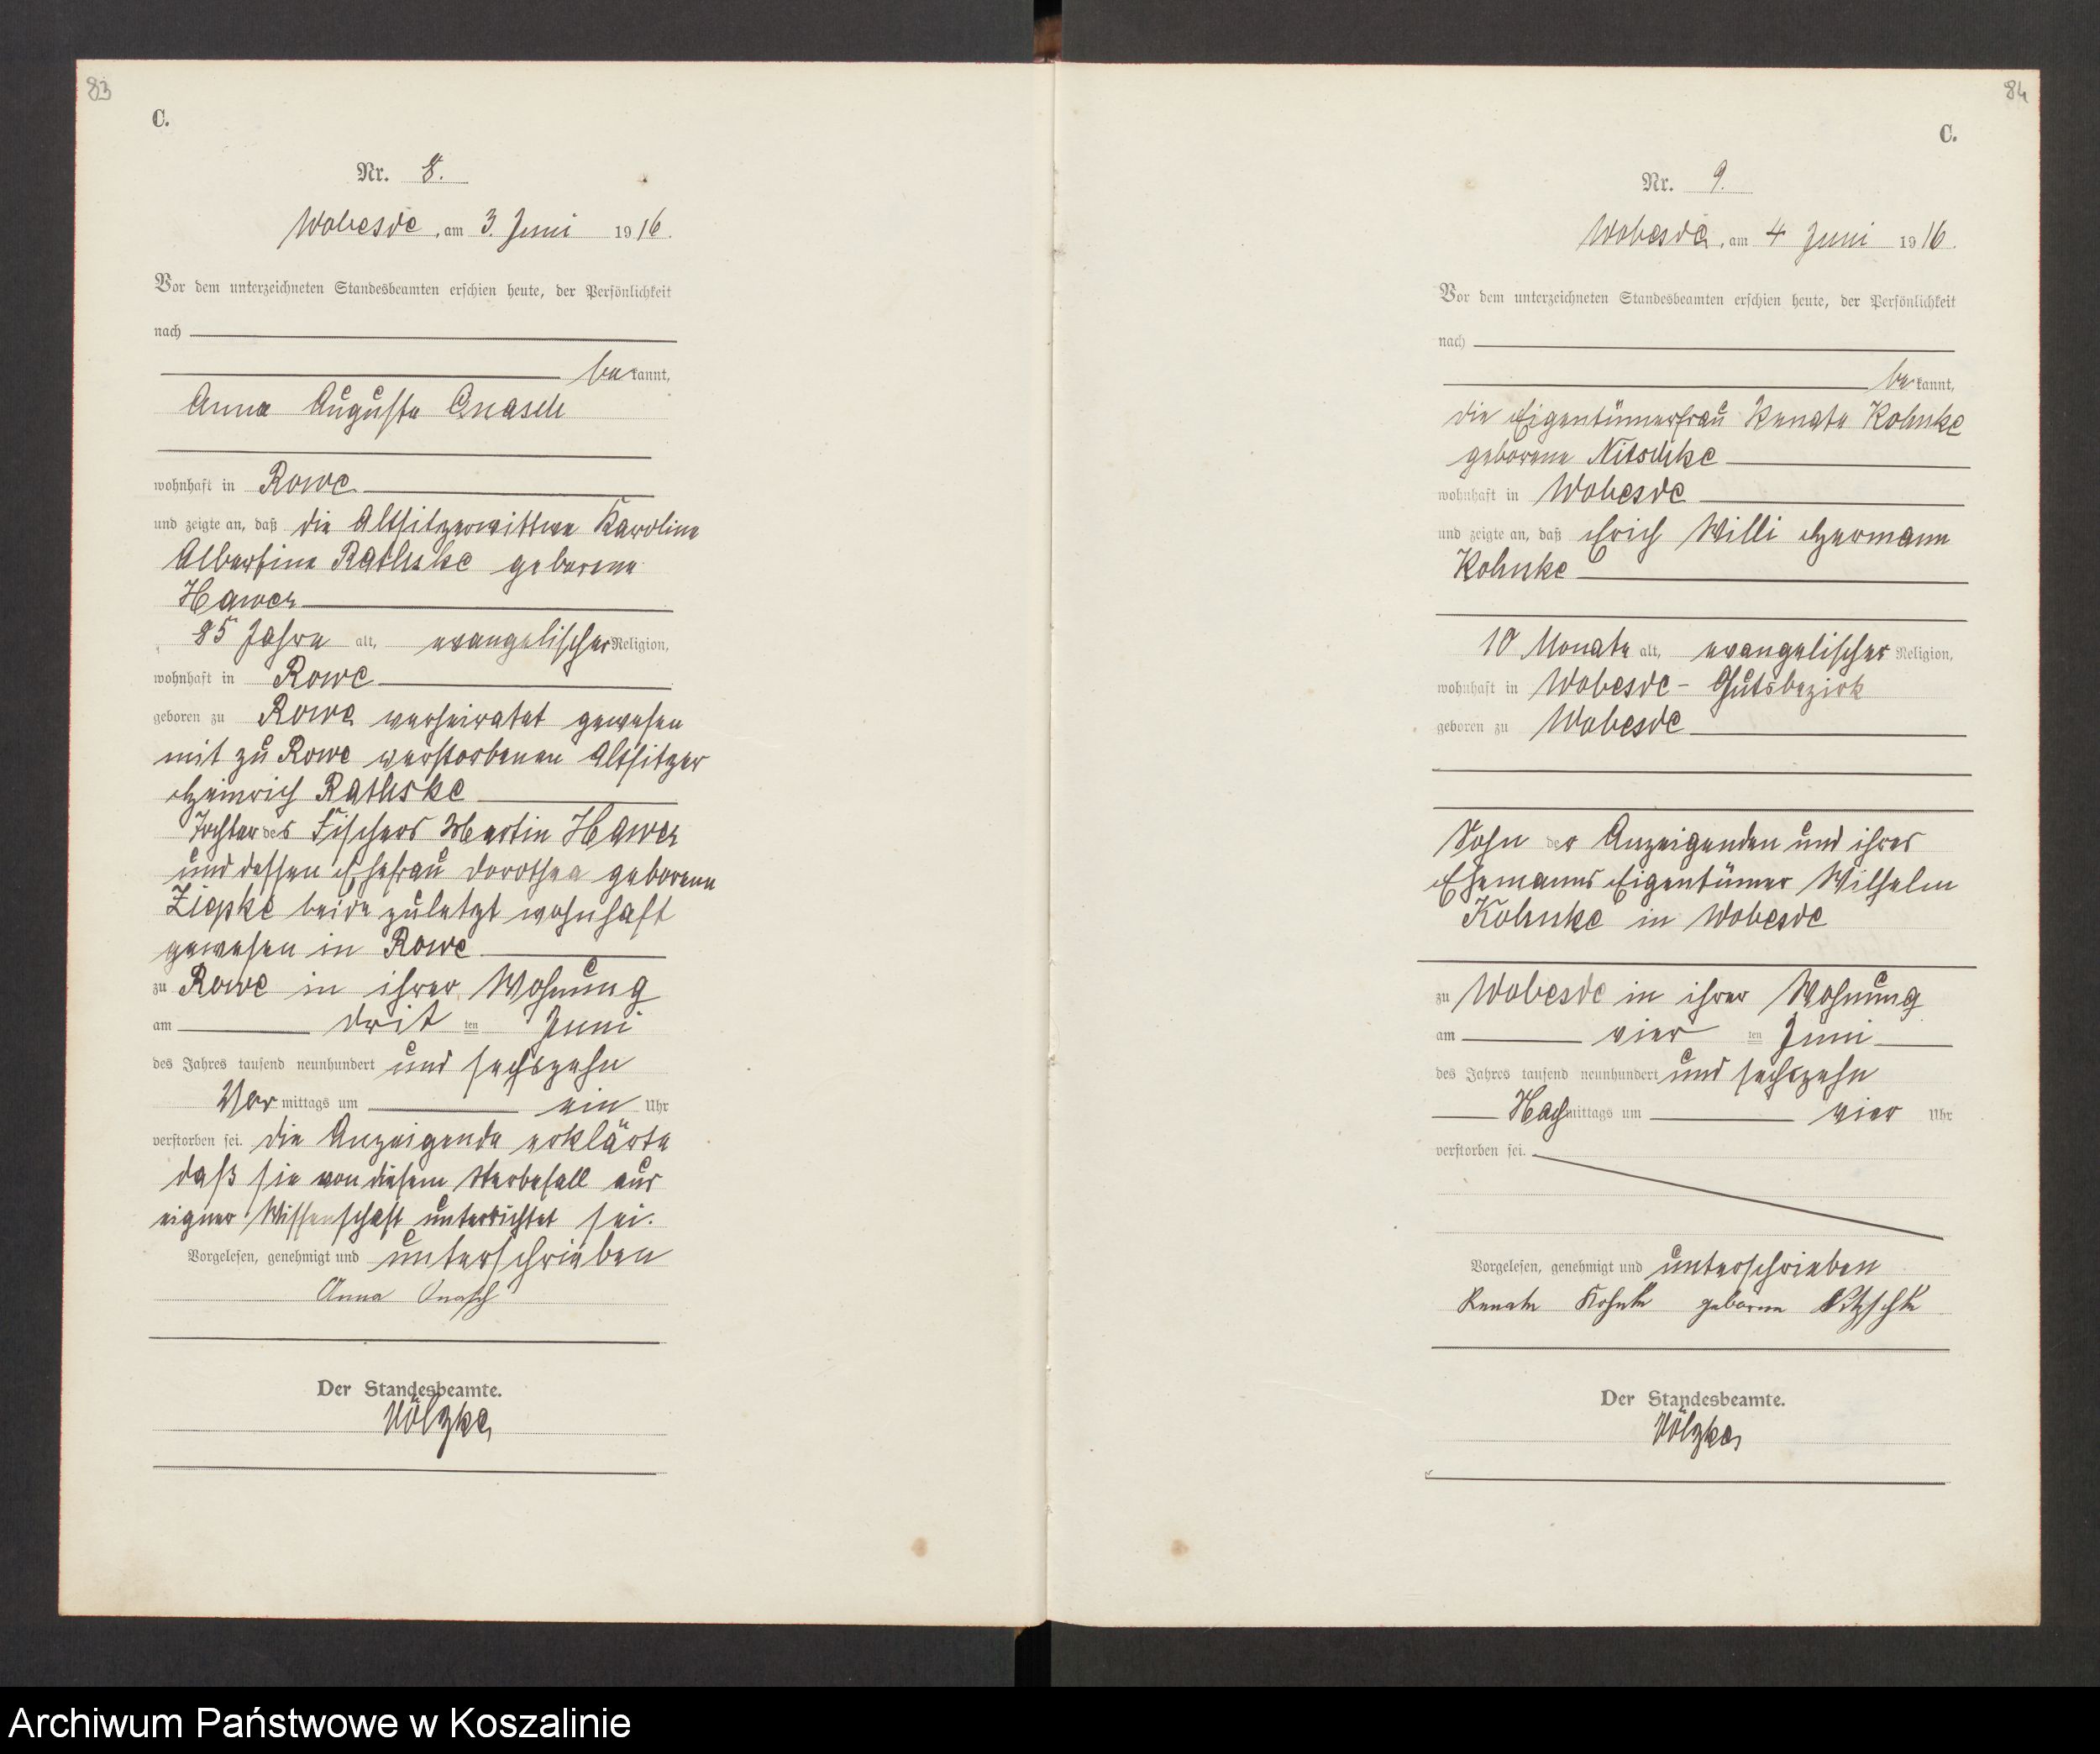 83
C.
Nr. 8.
Wobesde, am 3. Juni 1916.
Vor dem unterzeichneten Standesbeamten erschien heute, der Persönlichkeit
nach
bekannt,
Anna Auguste Gnasch
wohnhaft in Rowe
und zeigte an, daß die Altsitzerwittwe Karoline
Albertine Rathske geborene
Hawer
85 Jahre alt, evangelischer Religion,
wohnhaft in Rowe
geboren zu Rowe verheiratet gewesen
mit zu Rowe verstorbenen Altsitzer
Heinrich Rathske
Tochter des Fischers Martin Hawer
und dessen Ehefrau Dorothea geborene
Ziepke beide zuletzt wohnhaft
gewesen in Rowe
zu Rowe in ihrer Wohnung
am dritten Juni
des Jahres tausend neunhundert und sechszehn
Vormittags um ein Uhr
verstorben sei. Die Anzeigende erklärte
daß sie von diesem Sterbefall aus
eigner Wissenschaft unterrichtet sei.
Vorgelesen, genehmigt und unterschrieben
Anna Gnasch
Der Standesbeamte.
Völzke
84
C.
Nr. 9.
Wobesde, am 4 Juni 1916.
Vor dem unterzeichneten Standesbeamten erschien heute, der Persönlichkeit
nach
bekannt,
die Eigentümerfrau Renate Kohnke
geborene Nitschke
wohnhaft in Wobesde
und zeigte an, daß Erich Willi Hermann
Kohnke
10 Monate alt, evangelischer Religion,
wohnhaft in Wobesde - Gutsbezirk
geboren zu Wobesde
Sohn der Anzeigenden und ihres
Ehemanns Eigentümer Wilhelm
Kohnke in Wobesde
zu Wobesde in ihrer Wohnung
am vierten Juni
des Jahres tausend neunhundert und sechszehn
Nachmittags um vier Uhr
verstorben sei.
Vorgelesen, genehmigt und unterschrieben
Renate Kohnke geborene Nitzschke
Der Standesbeamte.
Völzke
Archiwum Państwowe w Koszalinie